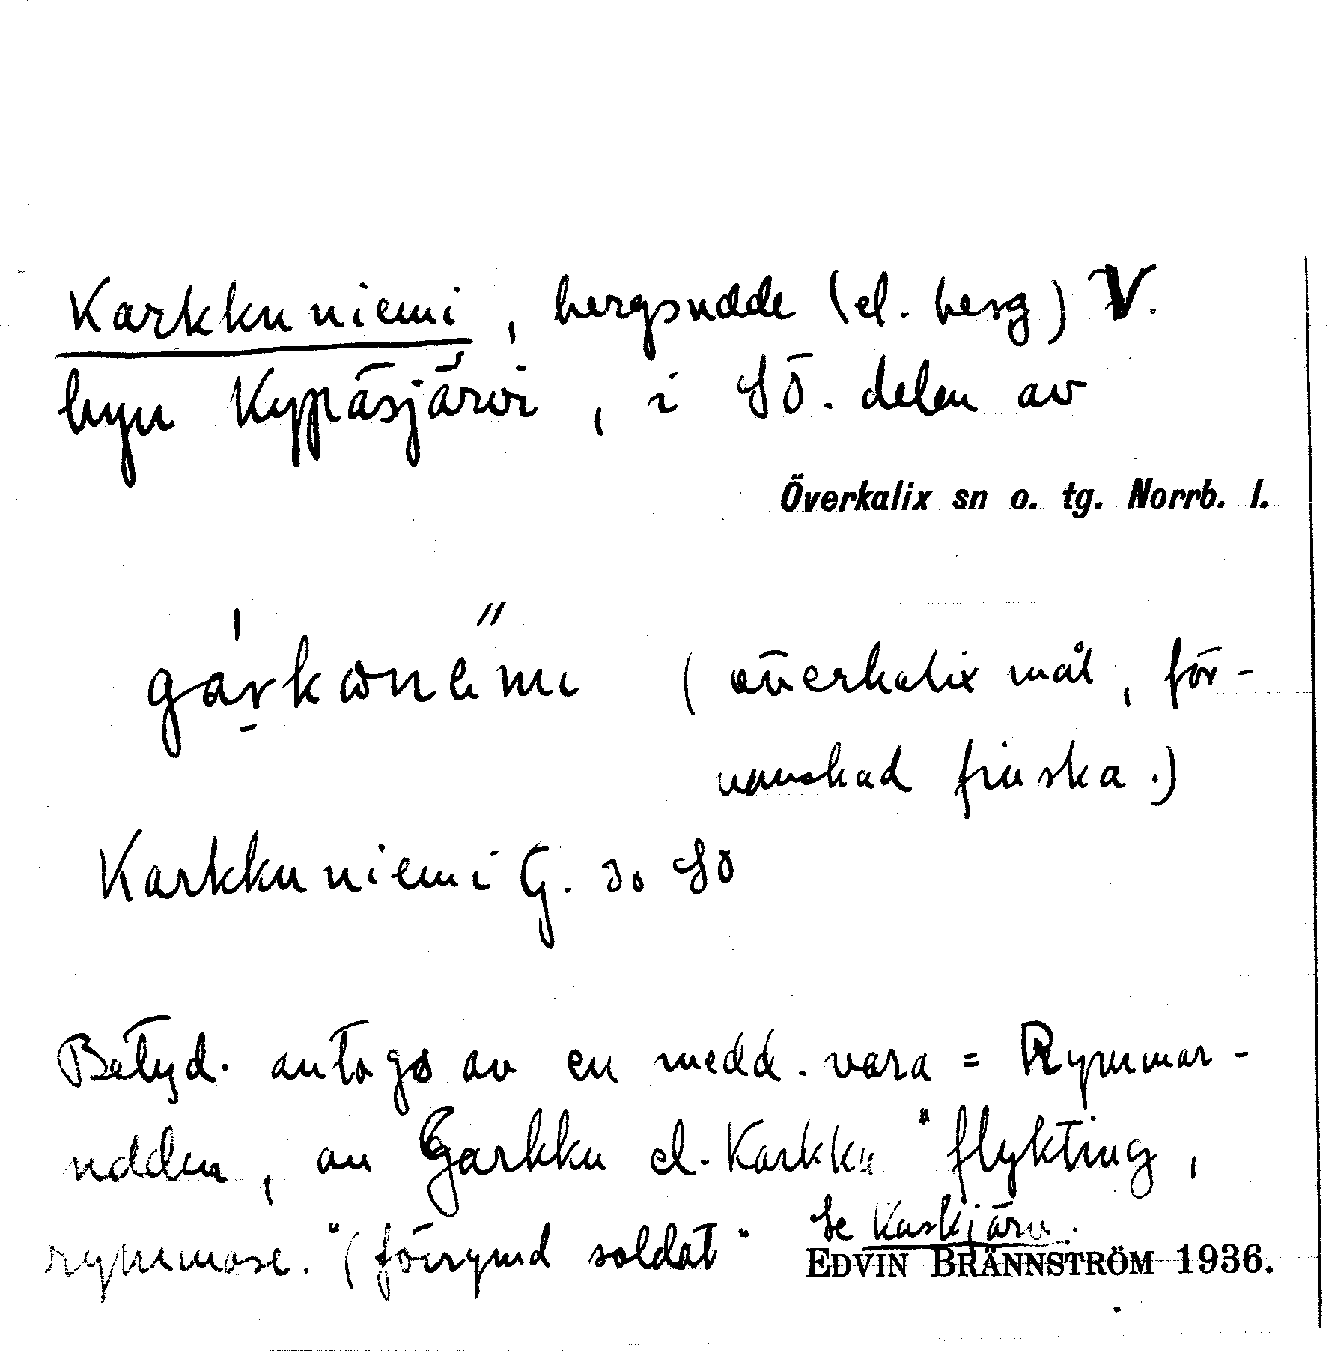 Karkkuniemi, bergsudde (el. berg) V.
byn Kypäsjärvi, i SÖ. delen av
Överkalix sn o. tg. Norrb. l.
(överkalixmål, för-
vanskad finska.)
Karkkuniemi G. 30 SÖ
Betyd. antogs av en medd. vara = Rymmar-
udden, av Garkku el. Karkku "flykting,
rymmare." (förrymd soldat" Se Kaskjärv.
EDVIN BRÄNNSTRÖM 1936.